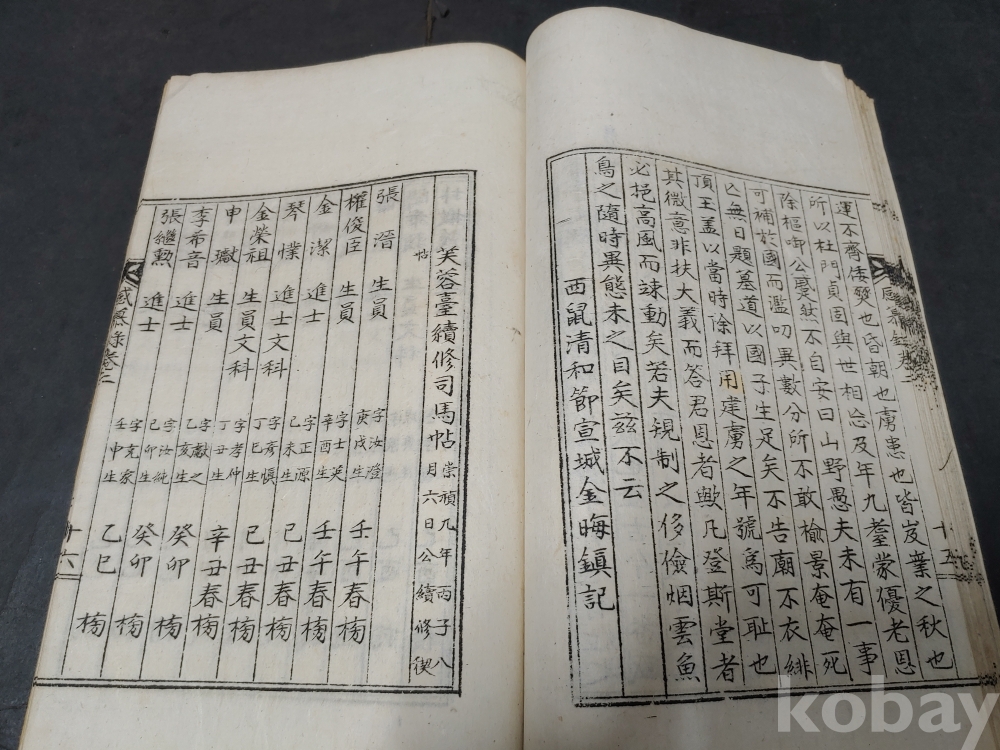 運不齊倭發也昏朝也虜患也皆岌業之秋也
所以杜門貞固與世相忘及年九耋蒙優老恩
除樞啣公蹙然不自安曰山野愚夫未有一事
可補於國而濫叨異數分所不敢榆景奄奄死
亡無日題墓道以國子生足矣不告廟不衣緋
頂玉盖以當時除拜用建虜之年號爲可耻也
其微意非扶大義而答君恩者歟凡登斯堂者
必挹高風而竦動矣若夫規制之侈儉烟雲魚
鳥之隨時異態未之目矣玆不云
西鼠清和節宣城金晦鎭記
十五
芙蓉臺續修司馬帖 崇禎九年丙子八
月六日公續修稧
帖
張溍 生員 字汝澄 庚戌生 壬午春榜
權俊臣 生員 字士英 辛酉生 壬午春榜
金潔 進士 字正源 己未生 己丑春榜
琴㦿 進士文科 字彥愼 丁巳生 己丑春榜
金榮祖 生員文科 字孝仲 丁丑生 辛丑春榜
申㺞 生員 字獻之 乙亥生 癸卯榜
李希音 進士 字汝純 己卯生 癸卯榜
張繼勲 進士 字克家 壬申生 乙巳榜
感慕錄卷二
十六
kobay